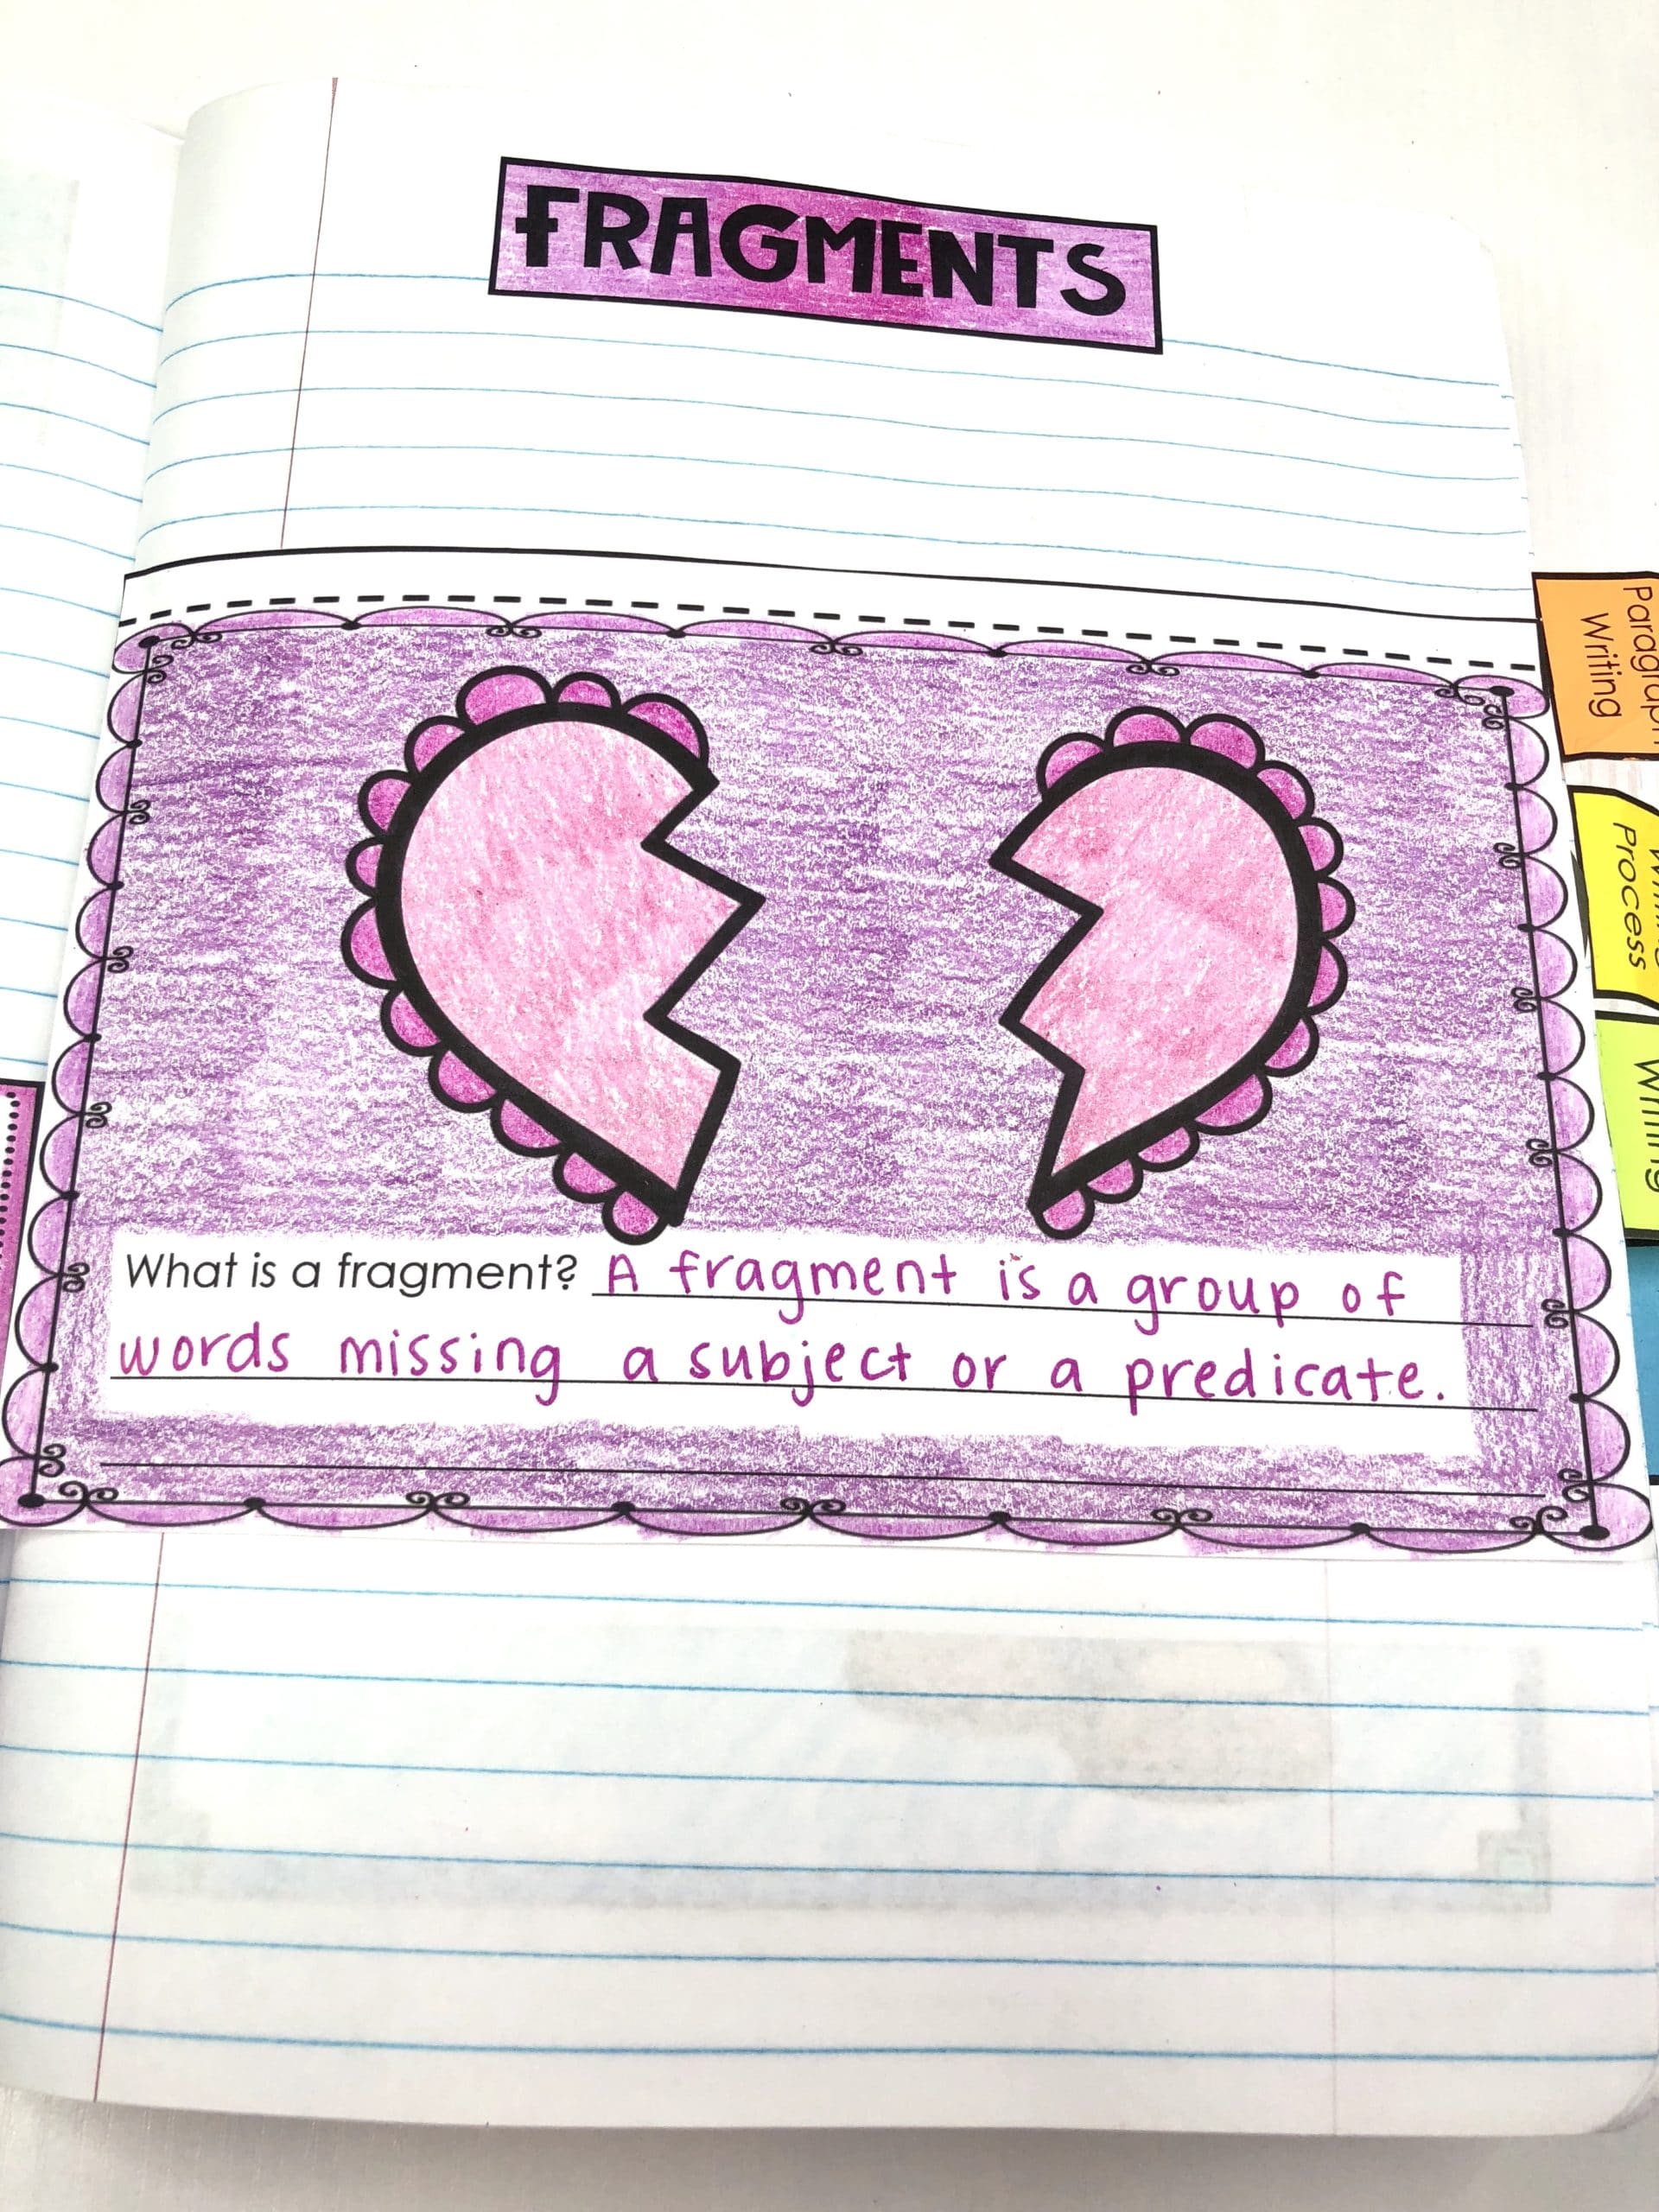 FRAGMENTS
What is a fragment? A fragment is a group of
words missing a subject or a predicate.
Paragraph
Writing
Process
Writing